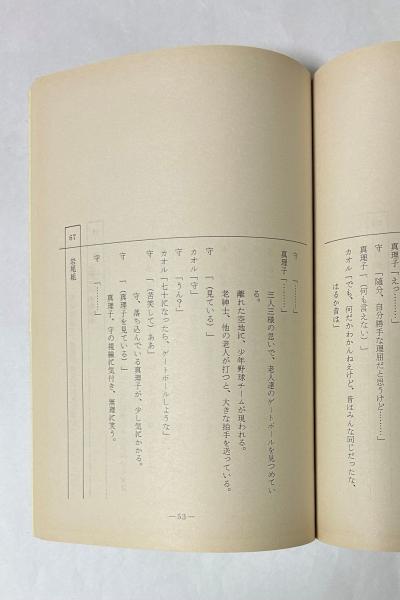 真理子「えっ………」
守　「随分、自分勝手な理屈だと思うけど………」
真理子「(何も言えない)」
カオル「でも、何だかわかんねえけど、昔はみんな同じだったな、
はるか昔は」
守　「………」
真理子「………」
三人三様の思いで、老人達のゲートボールを見つめてい
る。
離れた空地に、少年野球チームが現われる。
老紳士、他の老人が打つと、大きな拍手を送っている。
守　「(見ている)」
カオル「守」
守　「うん？」
カオル「七十になったら、ゲートボールしような」
守　「(苦笑して)ああ」
守、落ち込んでいる真理子が、少し気にかかる。
守　「(真理子を見ている)」
真理子、守の視線に気付き、無理に笑う。
守　「………」
67　岩尾組
—53—